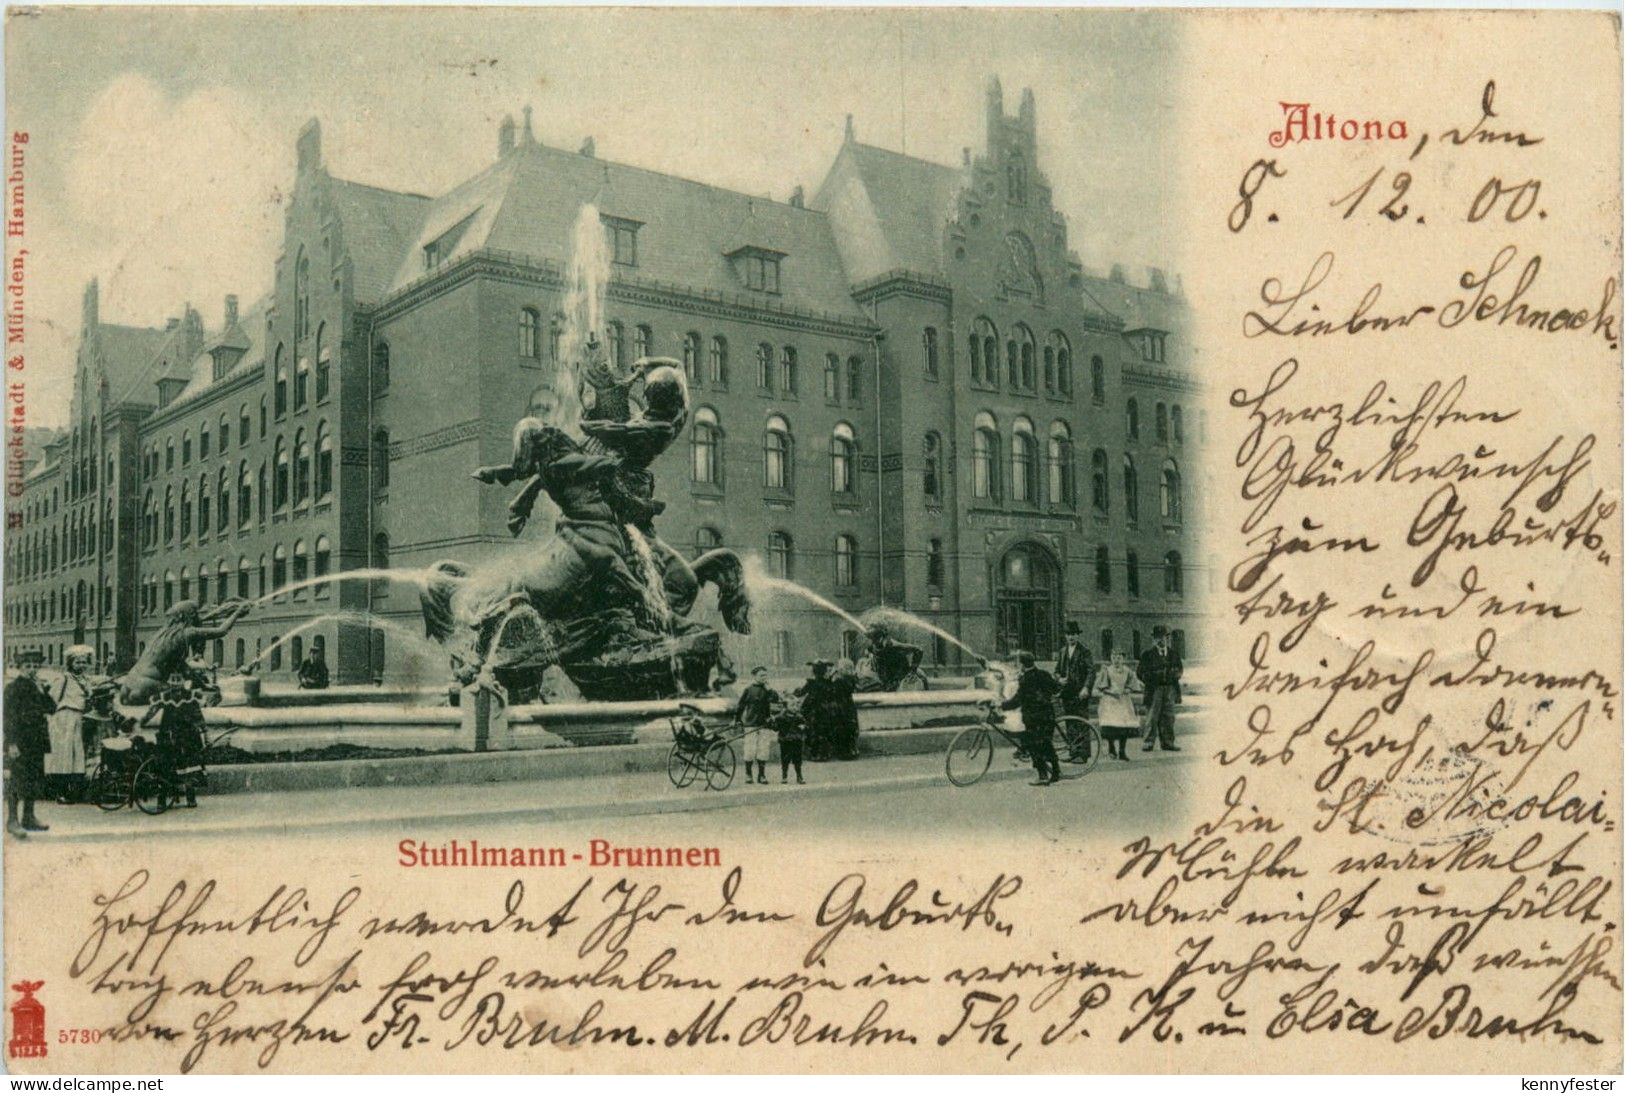 M Glückstadt & Münden, Hamburg
Altona, den
8. 12. 00.
Lieber Schnack.
Herzlichsten
Glückwunsch
zum Geburts-
tag und ein
dreifach donnern-
des Hoch, daß
die St. Nicolai-
Mühle wackelt
aber nicht umfällt.
Stuhlmann-Brunnen
Hoffentlich werdet Ihr den Geburts-
tag ebenso froh verleben wie im vorigen Jahre, daß wünschen
von Herzen Fr. Bruhn. M. Bruhn. Th, P. K. u Elsa Bruhn
5730
delcampe.net
kennyfester